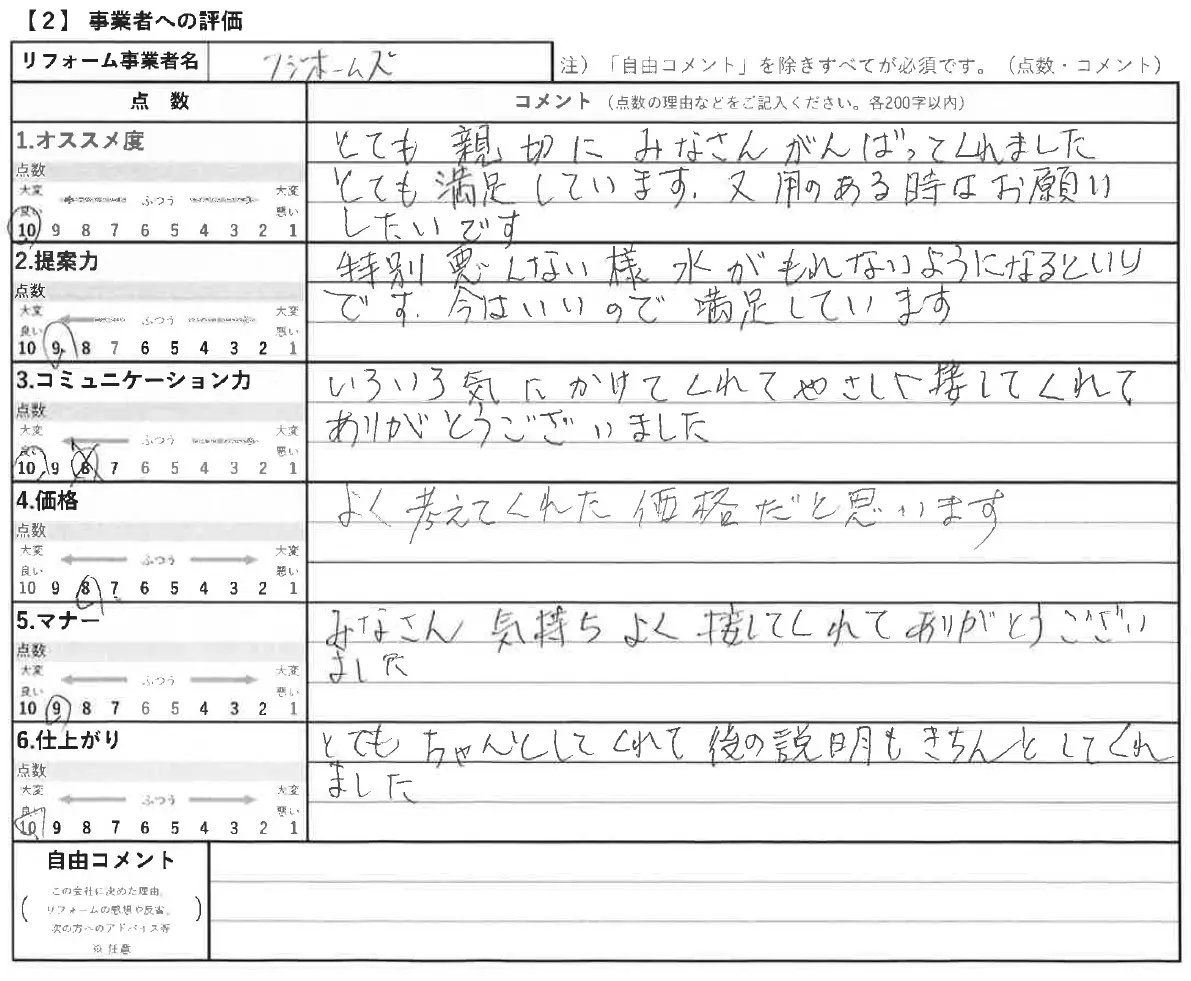 【2】 事業者への評価
リフォーム事業者名 フジホームズ
注）「自由コメント」を除きすべてが必須です。（点数・コメント）
点 数 コメント （点数の理由などをご記入ください。各200字以内）
1.オススメ度
点数
大変 良い ふつう 大変 悪い
10 9 8 7 6 5 4 3 2 1
とても 親切に みなさん がんばってくれました
とても 満足しています. 又 用のある時はお願い
したいです
2.提案力
点数
大変 良い ふつう 大変 悪い
10 9 8 7 6 5 4 3 2 1
特別 悪んない様 水がもれないようになるといい
です. 今はいいので 満足しています
3.コミュニケーション力
点数
大変 良い ふつう 大変 悪い
10 9 8 7 6 5 4 3 2 1
いろいろ気にかけてくれてやさしく接してくれて
ありがとうございました
4.価格
点数
大変 良い ふつう 大変 悪い
10 9 8 7 6 5 4 3 2 1
よく考えてくれた 価格だと思います
5.マナー
点数
大変 良い ふつう 大変 悪い
10 9 8 7 6 5 4 3 2 1
みなさん 気持ちよく 接してくれてありがとうござい
ました
6.仕上がり
点数
大変 良い ふつう 大変 悪い
10 9 8 7 6 5 4 3 2 1
とても ちゃんとしてくれて 後の説明もきちんとしてくれ
ました
自由コメント
この会社に決めた理由、
リフォームの感想や反省、
次の方へのアドバイス等
※ 任意